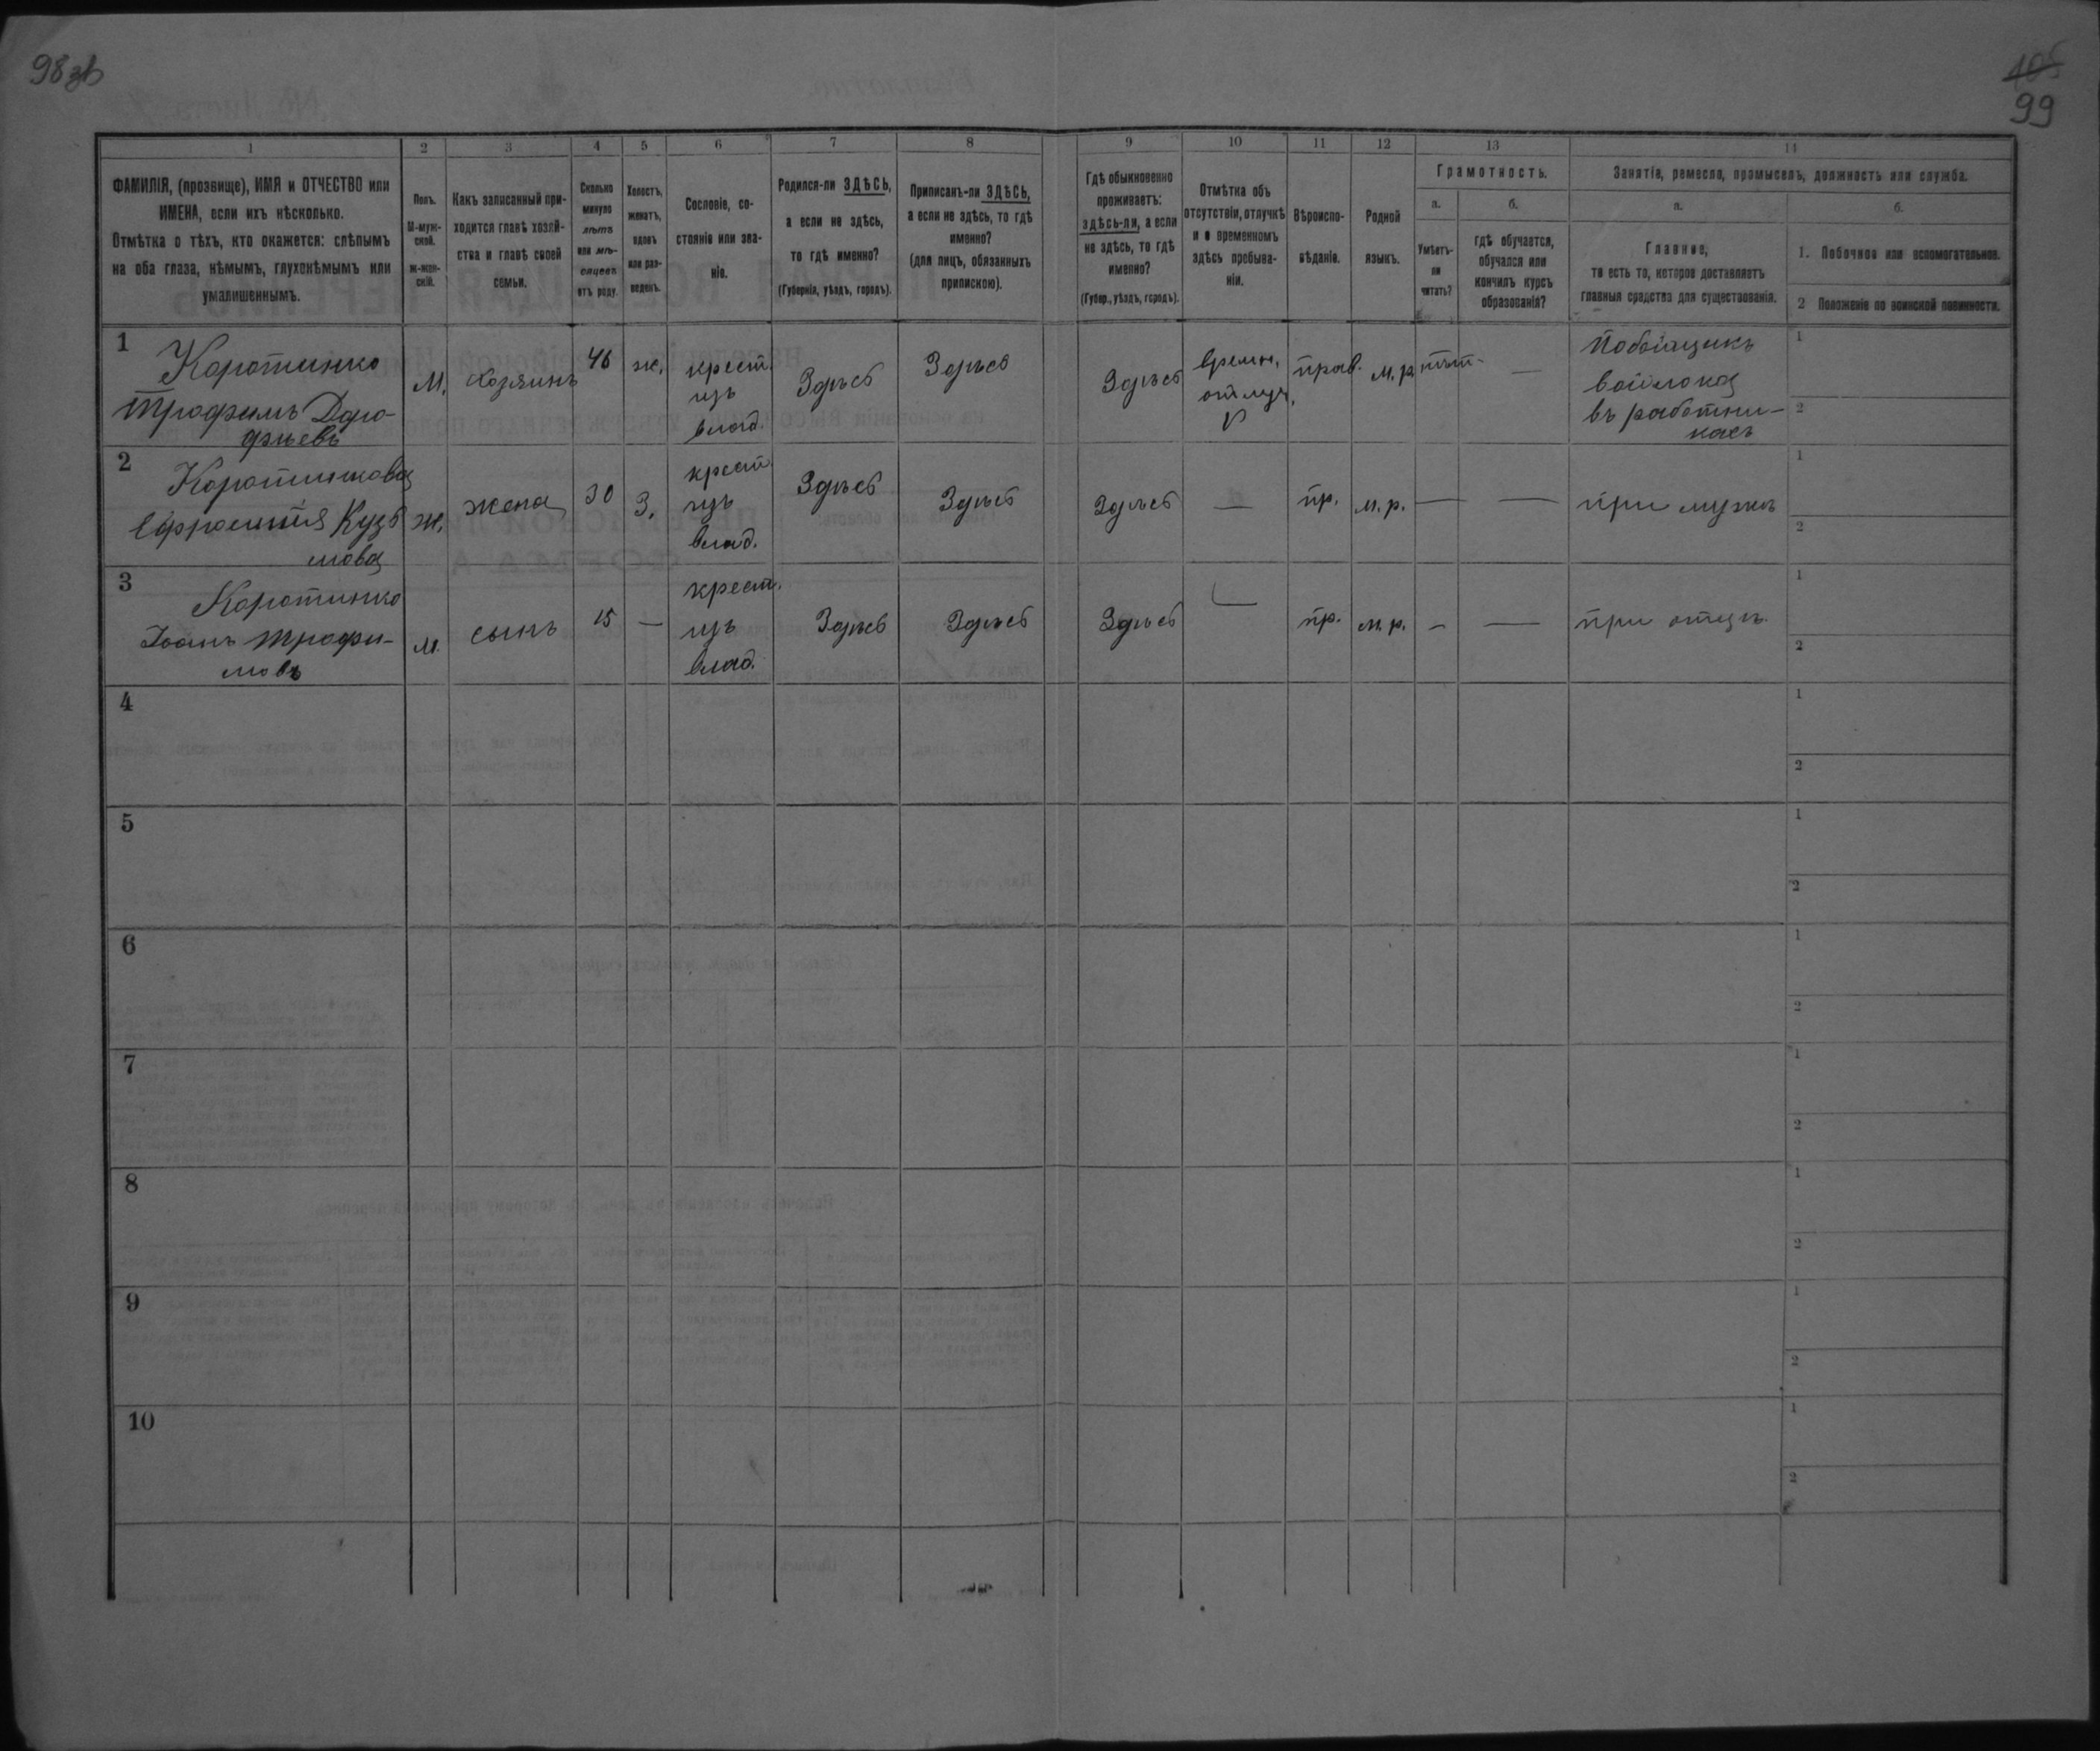 98 зв
105
99
1 2 3 4 5 6 7 8 9 10 11 12 13 14
ФАМИЛІЯ, (прозвище), ИМЯ и ОТЧЕСТВО или
ИМЕНА, если ихъ нѣсколько.
Отмѣтка о тѣхъ, кто окажется: слѣпымъ
на оба глаза, нѣмымъ, глухонѣмымъ или
умалишеннымъ.
Полъ.
М-муж-
ской.
ж-жен-
скій.
Какъ записанный при-
ходится главѣ хозяй-
ства и главѣ своей
семьи.
Сколько
минуло
лѣтъ
или мѣ-
сяцевъ
отъ роду.
Холостъ,
женатъ,
вдовъ
или раз-
веденъ.
Сословіе, со-
стояніе или зва-
ніе.
Родился-ли ЗДѢСЬ,
а если не здѣсь,
то гдѣ именно?
(Губернія, уѣздъ, городъ).
Приписанъ-ли ЗДѢСЬ,
а если не здѣсь, то гдѣ
именно?
(для лицъ, обязанныхъ
припискою).
Гдѣ обыкновенно
проживаетъ:
здѣсь-ли, а если
не здѣсь, то гдѣ
именно?
(Губер., уѣздъ, городъ).
Отмѣтка объ
отсутствіи, отлучкѣ
и о временномъ
здѣсь пребыва-
ніи.
Вѣроиспо-
вѣданіе.
Родной
языкъ.
Грамотность.
а.
Умѣетъ-
ли
читать?
б.
гдѣ обучается,
обучался или
кончилъ курсъ
образованія?
Занятіе, ремесло, промыселъ, должность или служба.
а.
Главное,
то есть то, которое доставляетъ
главныя средства для существованія.
б.
1. Побочное или вспомогательное.
2 Положеніе по воинской повинности.
1
Коротинко
Трофимъ Доро-
фѣевъ
м.
хозяинъ
46
ж.
крест.
изъ
влад.
Здѣсь
Здѣсь
Здѣсь
времн.
отлуч.
прав.
м.р.
нѣт
—
войлока
въ работни-
кахъ
1
2
2
Коротинкова
Ефросинія Кузь
мова
ж.
жена
30
З.
крест.
изъ
влад.
Здѣсь
Здѣсь
Здѣсь
—
пр.
м.р.
—
—
при мужѣ
1
2
3
Коротинко
Іоанъ Трофи-
мовъ
м.
сынъ
15
—
крест.
изъ
влад.
Здѣсь
Здѣсь
Здѣсь
—
пр.
м.р.
–
—
при отцѣ.
1
2
4
1
2
5
1
2
6
1
2
7
1
2
8
1
2
9
1
2
10
1
2